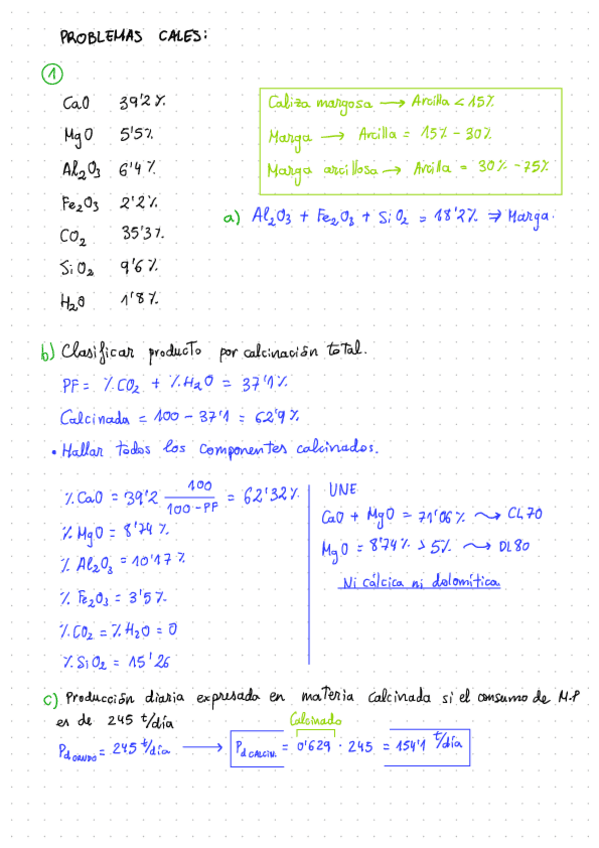 PROBLEMAS CALES:
1
CaO 39'2%
MgO 5'5%
Al2O3 6'4%
Fe2O3 2'2%
CO2 35'3%
SiO2 9'6%
H2O 1'8%
Caliza margosa → Arcilla < 15%
Marga → Arcilla = 15% - 30%
Marga arcillosa → Arcilla = 30% - 75%
a) Al2O3 + Fe2O3 + SiO2 = 18'2% ⇒ Marga.
b) Clasificar producto por calcinación total.
PF = %CO2 + %H2O = 37'1%
Calcinada = 100 - 37'1 = 62'9%
• Hallar todos los componentes calcinados.
%CaO = 39'2 100/100-PF = 62'32%
%MgO = 8'74%
%Al2O3 = 10'17%
%Fe2O3 = 3'5%
%CO2 = %H2O = 0
%SiO2 = 15'26
UNE
CaO + MgO = 71'06% ⇝ CL70
MgO = 8'74% > 5% ⇝ DL80
Ni cálcica ni dolomítica
c) Producción diaria expresada en materia calcinada si el consumo de M.P
es de 245 t/día
Calcinado
Pd CRUDO = 245 t/día → Pd CALCIN. = 0'629 · 245 = 154'1 t/día